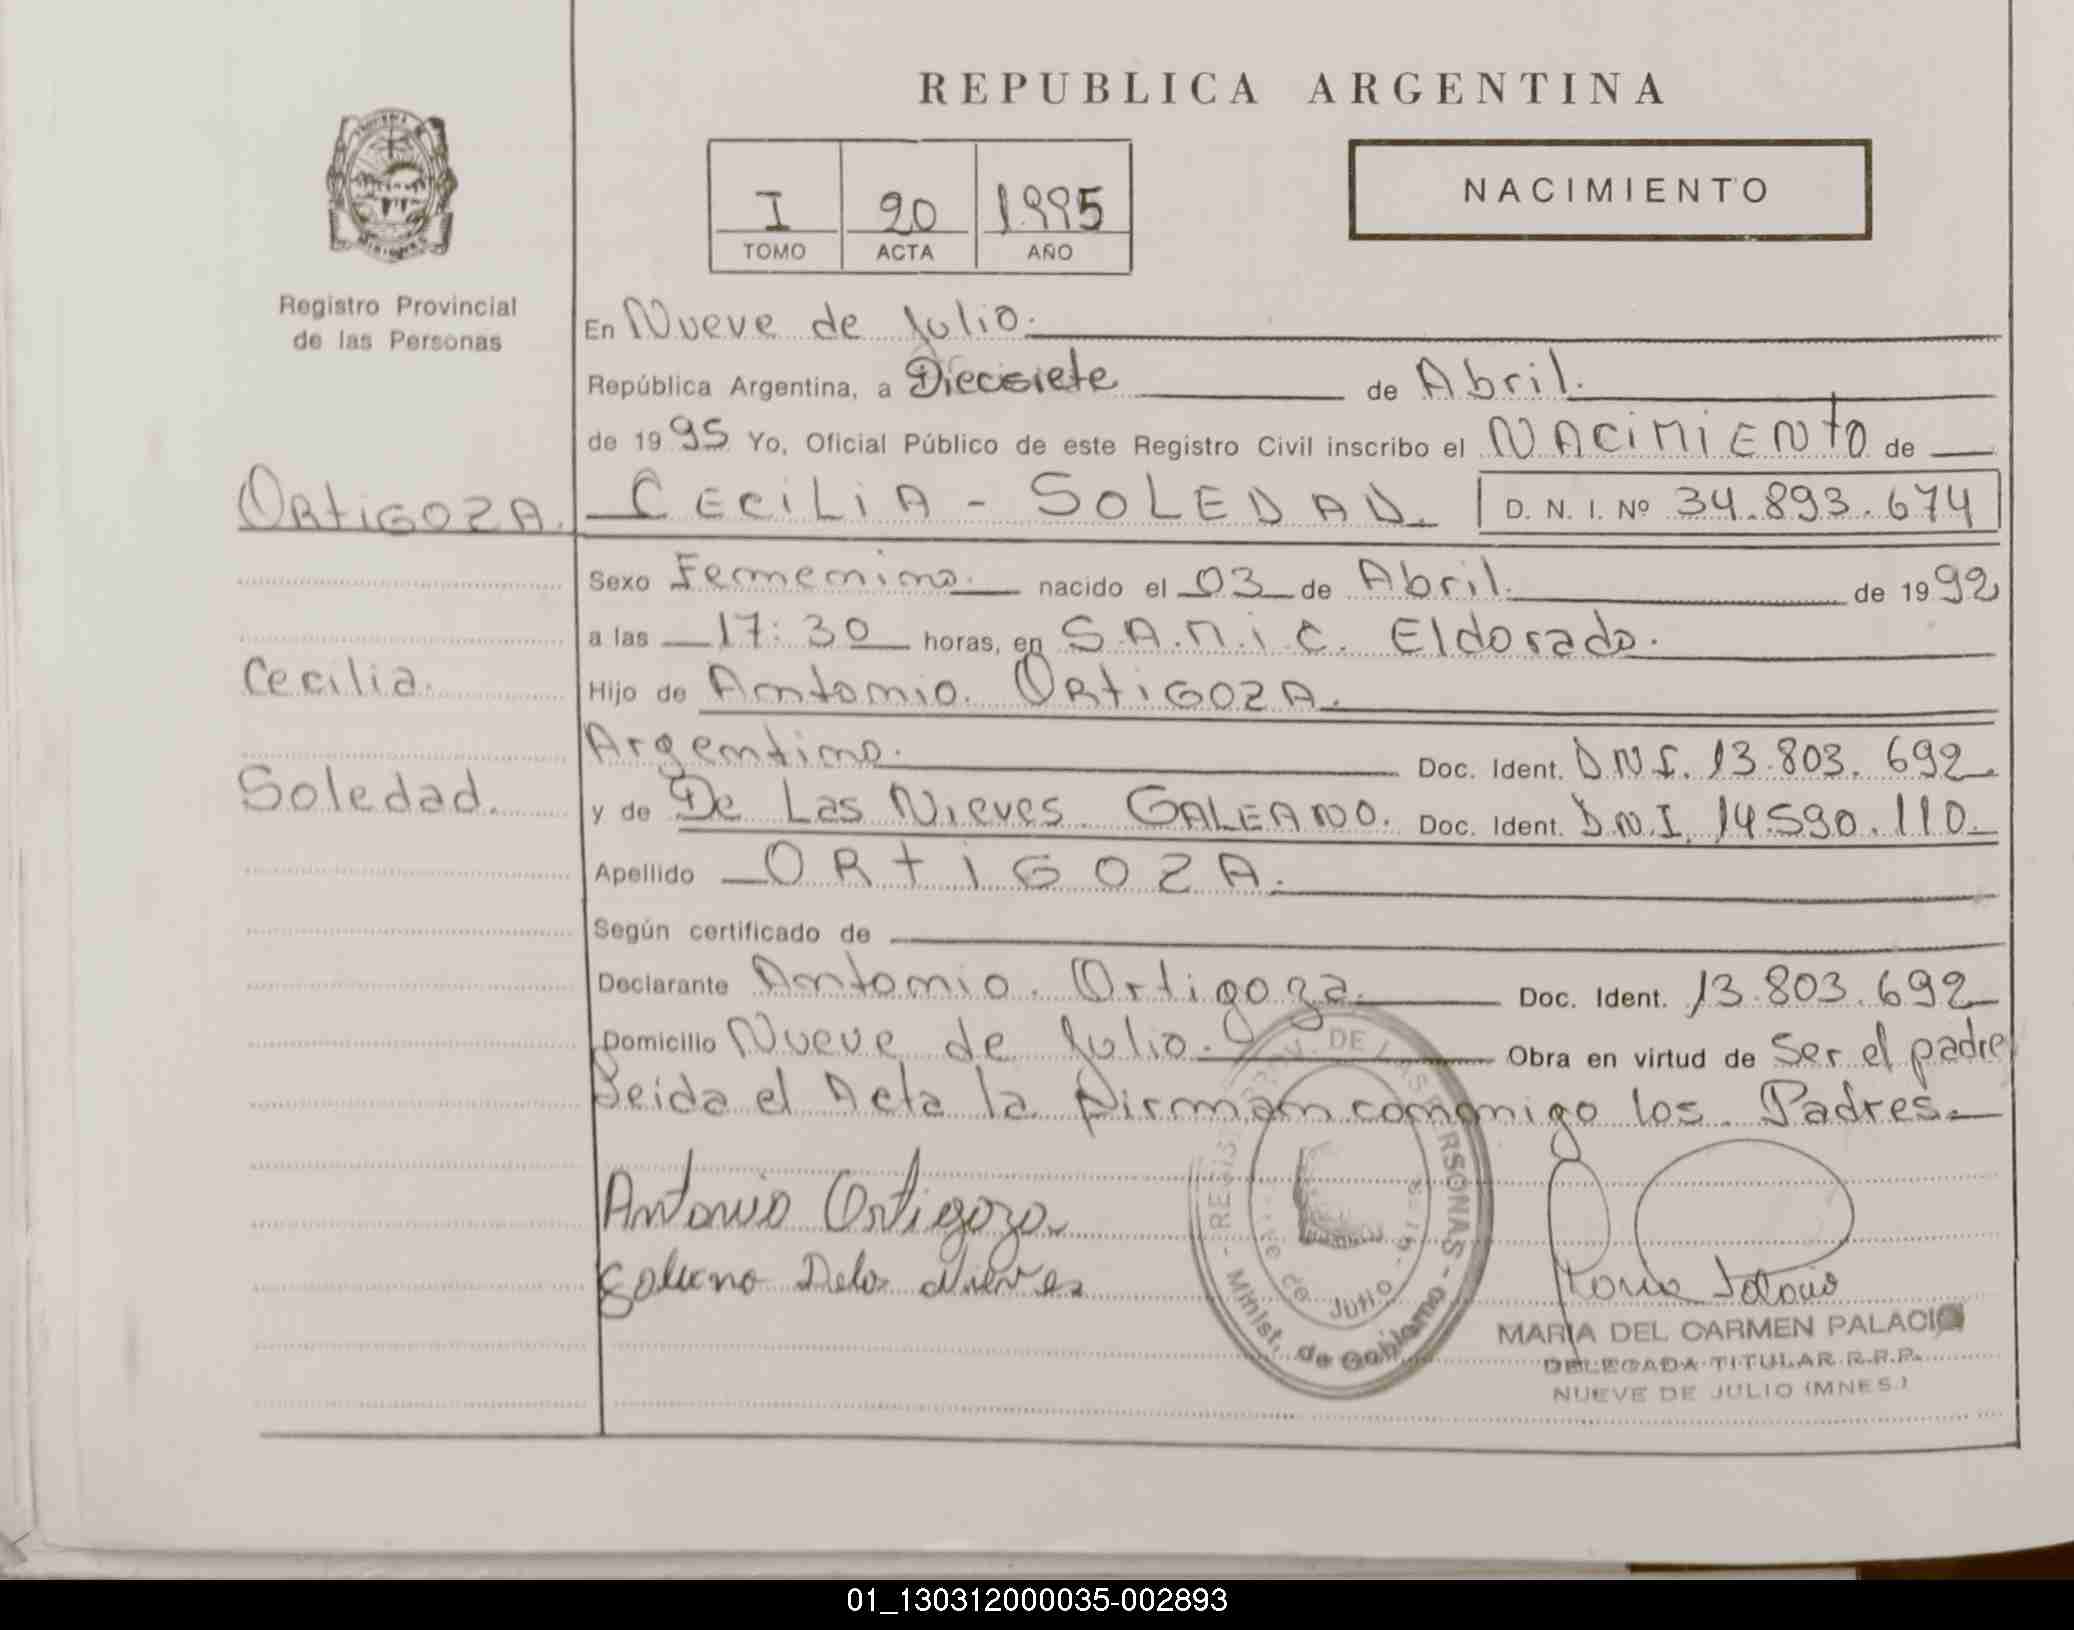 REPUBLICA ARGENTINA
NACIMIENTO
I 20 1995
TOMO ACTA AÑO
Registro Provincial
de las Personas
En Nueve de Julio.
República Argentina, a Diecisiete de Abril.
de 1995 Yo, Oficial Público de este Registro Civil inscribo el NACIMIENTO de
ORTIGOZA. CECILIA - SOLEDAD. D. N. I. Nº 34.893.674
Sexo Femenino. nacido el 03 de Abril. de 1992
a las 17:30 horas, en S.A.M.i.C. Eldorado.
Cecilia. Hijo de Antonio. ORTIGOZA.
Argentino. Doc. Ident. D.N.I. 13.803.692.
Soledad. y de De Las Nieves GALEANO. Doc. Ident. D.N.I. 14.590.110.
Apellido ORTIGOZA.
Según certificado de
Declarante Antonio. Ortigoza. Doc. Ident. 13.803.692
Domicilio Nueve de Julio. Obra en virtud de Ser el padre
Leida el Acta la firman conmigo los Padres.
Antonio Ortigoza
Galeano Delas Nieves
MARIA DEL CARMEN PALACIO
DELEGADA TITULAR R.P.P.
NUEVE DE JULIO (MNES.)
DE LAS PERSONAS -
Minist. de Gobierno
de Julio
01_130312000035-002893